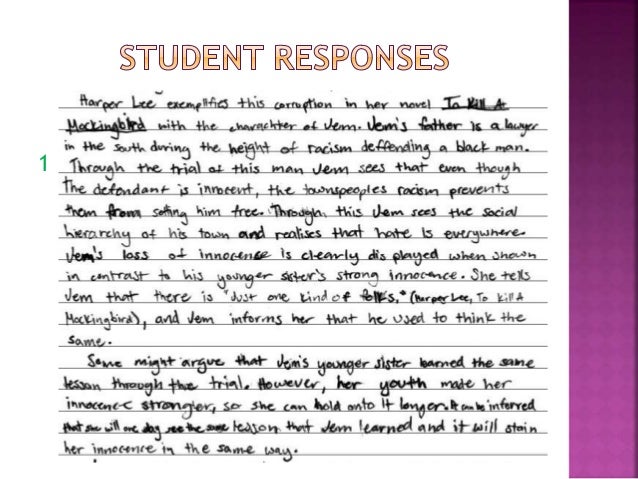 STUDENT RESPONSES
1
Harper Lee exemplifies this corruption in her novel To Kill A
Mockingbird with the charachter of Jem. Jem's father is a lawyer
in the South during the height of racism deffending a black man.
Through the trial of this man Jem sees that even though
the defendant is innocent, the townspeoples racism prevents
them from setting him free. Through, this Jem sees the social
hierarchy of his town and realises that hate is everywhere.
Jem's loss of innocense is clearly displayed when shown
in contrast to his younger sister's strong innocence. She tells
Jem that there is "Just one kind of folks," (Harper Lee, To Kill A
Mockingbird), and Jem informs her that he used to think the
same.
Some might argue that Jem's younger sister learned the same
lesson through the trial. However, her youth made her
innocence strongler, so she can hold onto it longer. It can be inferred
that she will one day see the same lesson that Jem learned and it will stain
her innocence in the same way.